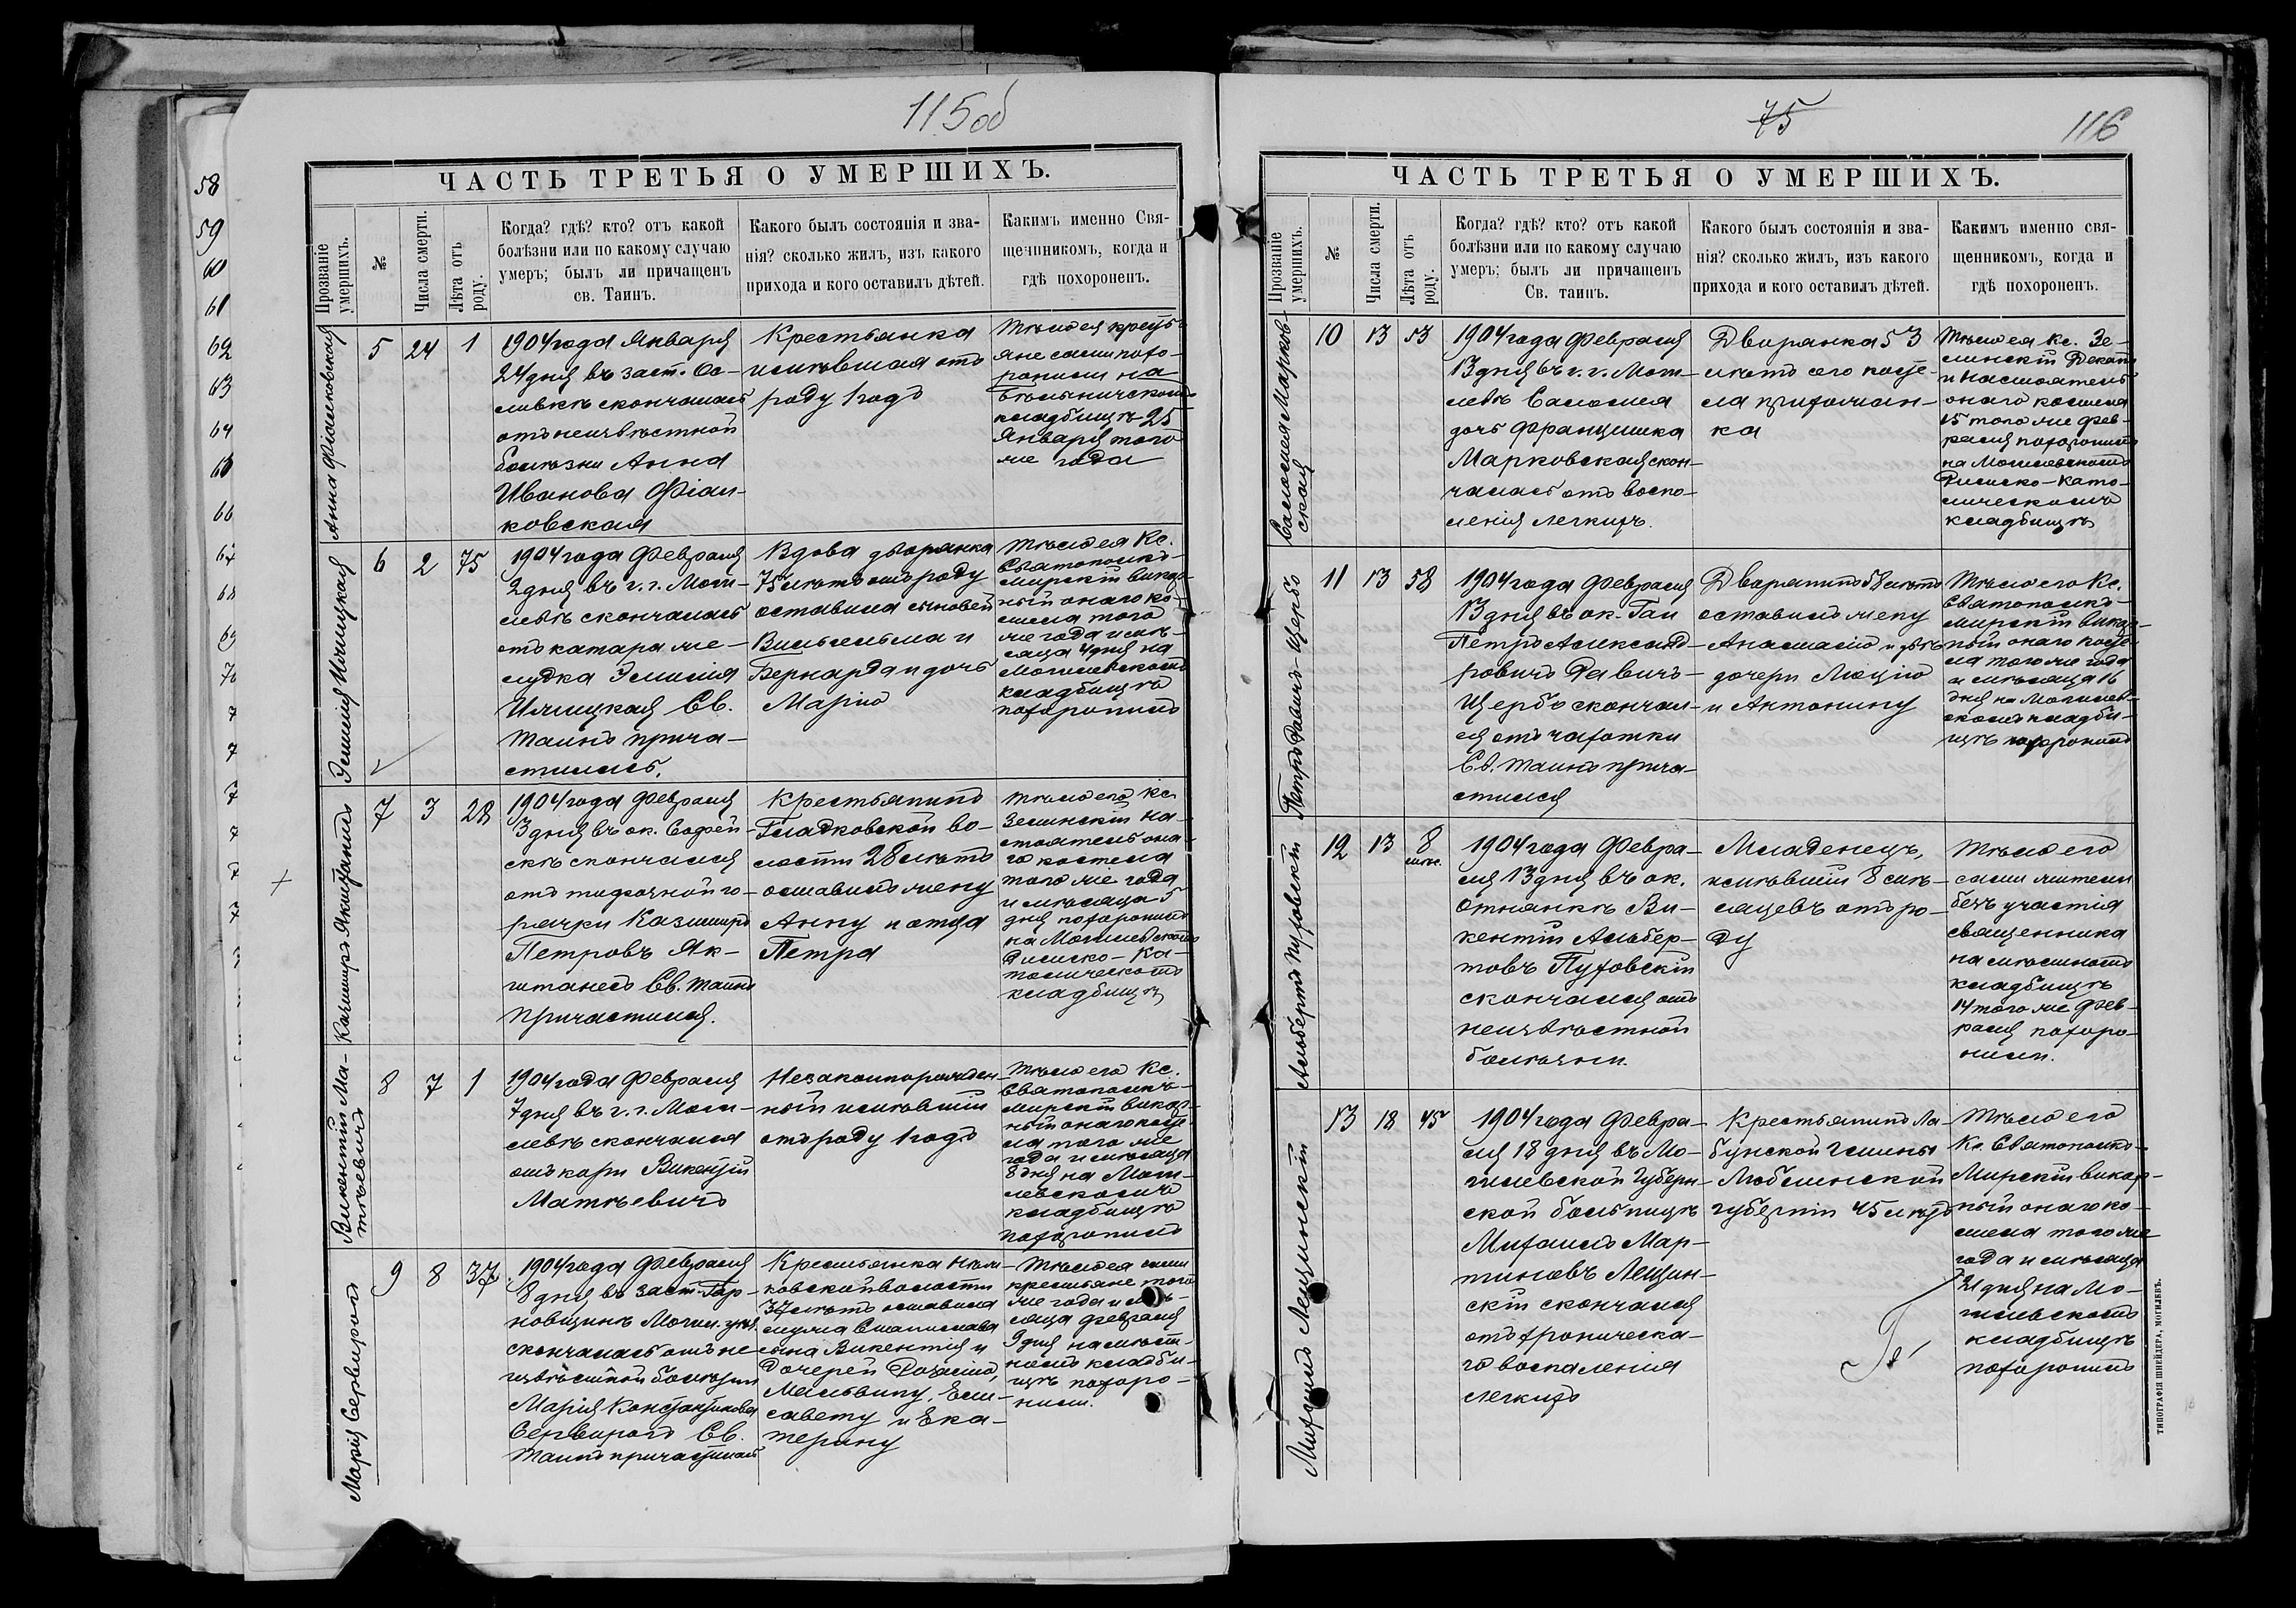 115об
ЧАСТЬ ТРЕТЬЯ О УМЕРШИХЪ.
Прозваніе умершихъ.
№
Числа смерти.
Лѣта отъ роду.
Когда? гдѣ? кто? отъ какой
болѣзни или по какому случаю
умеръ; былъ ли причащенъ
св. Таинъ.
Какого былъ состоянія и зва-
нія? сколько жилъ, изъ какого
прихода и кого оставилъ дѣтей.
Какимъ именно Свя-
щенникомъ, когда и
гдѣ похороненъ.
Анна Фіалковская
5
24
1
1904 года Января
24 дня въ заст. Ос-
ливкѣ скончалась
отъ неизвѣстной
болѣзни Анна
Иванова Фіал-
ковская
Крестьянка
имѣвшая отъ
роду 1 годъ
Тѣло ея кресть-
яне сами похо-
ронили на
Бѣлыничскомъ
кладбищѣ 25
Января того
же года
Эмилія Илицкая
6
2
75
1904 года Февраля
2 дня въ г. г. Моги-
левѣ скончалась
отъ катара же-
лудка Эмилія
Илицкая Св.
Таинъ прича-
стилась.
Вдова дворянка
75 лѣтъ отъ роду
оставила сыновей
Вильгельма и
Бернарда и дочь
Марію
Тѣло ея Кс.
Святополкъ-
Мирскій викар-
ный онаго ко-
стела того
же года и мѣ-
сяца 4 дня на
Могилевскомъ
кладбищѣ
похоронилъ
Казимиръ Якштанъ
7
3
28
1904 года Февраля
3 дня въ ок. Софей-
скѣ скончался
отъ тифозной го-
рячки Казимиръ
Петровъ Як-
штанесъ Св. Таинъ
причастился.
Крестьянинъ
Гладковской во-
лости 28 лѣтъ
оставилъ жену
Анну и отца
Петра
Тѣло его Кс
Зелинскій На-
стоятель она-
го костела
того же года
и мѣсяца 5
дня похоронилъ
на Могилевскомъ
Римско-Ка-
толическомъ
кладбищѣ
Викентій Ма-
тѣевичъ
8
7
1
1904 года Февраля
7 дня въ г. г. Моги-
левѣ скончался
отъ кори Викентій
Матѣевичъ
Незаконнорожден-
ный имѣвшій
отъ роду 1 годъ
Тѣло его Кс.
Святополкъ-
Мирскій викар-
ный онаго косте-
ла того же
года и мѣсяца
8 дня на Моги-
левскомъ
кладбищѣ
похоронилъ
Марія Сервирогъ
9
8
37
1904 года Февраля
8 дня въ заст. Тар-
новщинѣ Могил. уѣз.
скончалась отъ не-
извѣстной болѣзни
Марія Константинова
Сервирогъ Св.
Таинъ причастилась
Крестьянка
ковской волости
37 лѣтъ оставила
мужа Станислава
сына Викентія и
дочерей Розалію,
Мальвину, Ели-
савету и Ека-
терину
Тѣло ея сами
крестьяне того
же года и мѣ-
сяца Февраля
9 дня на мѣст-
номъ кладби-
щѣ похоро-
нили.
75
116
ЧАСТЬ ТРЕТЬЯ О УМЕРШИХЪ.
Прозваніе умершихъ.
№
Числа смерти.
Лѣта отъ роду.
Когда? гдѣ? кто? отъ какой
болѣзни или по какому случаю
умеръ; былъ ли причащенъ
Св. таинъ.
Какого былъ состоянія и зва-
нія? сколько жилъ, изъ какого
прихода и кого оставилъ дѣтей.
Какимъ именно свя-
щенникомъ, когда и
гдѣ похороненъ.
Саломея Марков-
ская
10
13
53
1904 года Февраля
13 дня въ г. г. Моги-
левѣ Саломея
дочь Францишка
Марковская скон-
чалась отъ воспа-
ленія легкихъ.
Дворянка 53
лѣтъ сего косте-
ла прихожан-
ка
Тѣло ея Кс. Зе-
линскій Деканъ
и Настоятель
онаго костела
15 того же Фев-
раля похоронилъ
на Могилевскомъ
Римско-Като-
лическомъ
кладбищѣ
Петръ Равичъ-Щербо
11
13
58
1904 года Февраля
13 дня въ ок. Гаи
Петръ Александ-
ровичъ Равичъ-
Щербо скончал-
ся отъ чахотки
Св. Таинъ прича-
стился
Дворянинъ 58 лѣтъ
оставилъ жену
Анастасію и двѣ
дочери Люцію
и Антонину
Тѣло его Кс.
Святополкъ-
Мирскій викар-
ный онаго косте-
ла того же года
и мѣсяца 16
дня на Могилев-
скомъ кладби-
щѣ похоронилъ
Альбертъ Пуховскій
12
13
8
мѣс.
1904 года Февра-
ля 13 дня въ ок.
Отнянкѣ Ви-
кентій Альбер-
товъ Пуховскій
скончался отъ
неизвѣстной
болѣзни.
Младенецъ,
имѣвшій 8 мѣ-
сяцевъ отъ ро-
ду
Тѣло его
сами жители
безъ участія
священника
на мѣстномъ
кладбищѣ
14 того же Фев-
раля похоро-
нили.
Михаилъ Лещинскій
13
18
45
1904 года Февра-
ля 18 дня въ Мо-
гилевской Губерн-
ской больницѣ
Михаилъ Мар-
тиновъ Лещин-
скій скончался
отъ хроническа-
го воспаленія
легкихъ
Крестьянинъ Ла-
бунской Гмины
Люблинской
губерніи 45 лѣтъ
Тѣло его
Кс. Святополкъ-
Мирскій викар-
ный онаго ко-
стела того же
года и мѣсяца
21 дня на Мо-
гилевскомъ
кладбищѣ
похоронилъ
ТИПОГРАФІЯ ШНЕЙДЕРА, МОГИЛЕВЪ.
58
59
60
61
62
63
64
65
66
67
68
69
70
7
7
7
7
7
7